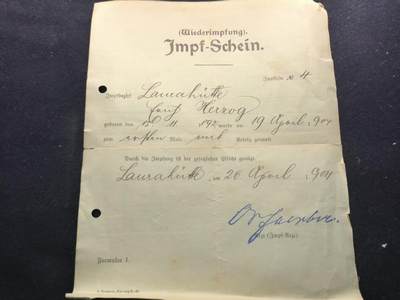 (Wiederimpfung).
Impf-Schein.
Impfliste № 4
Impfbezirk Laurahütte
Herzog
geboren den 15 11 1892 wurde am 19 April 1904
zum ersten Male mit Erfolg geimpft
Durch die Impfung ist der gesetzlichen Pflicht genügt.
Laurahütte, am 26 April 1904
Arzt (Impf-Arzt).
Formular I.